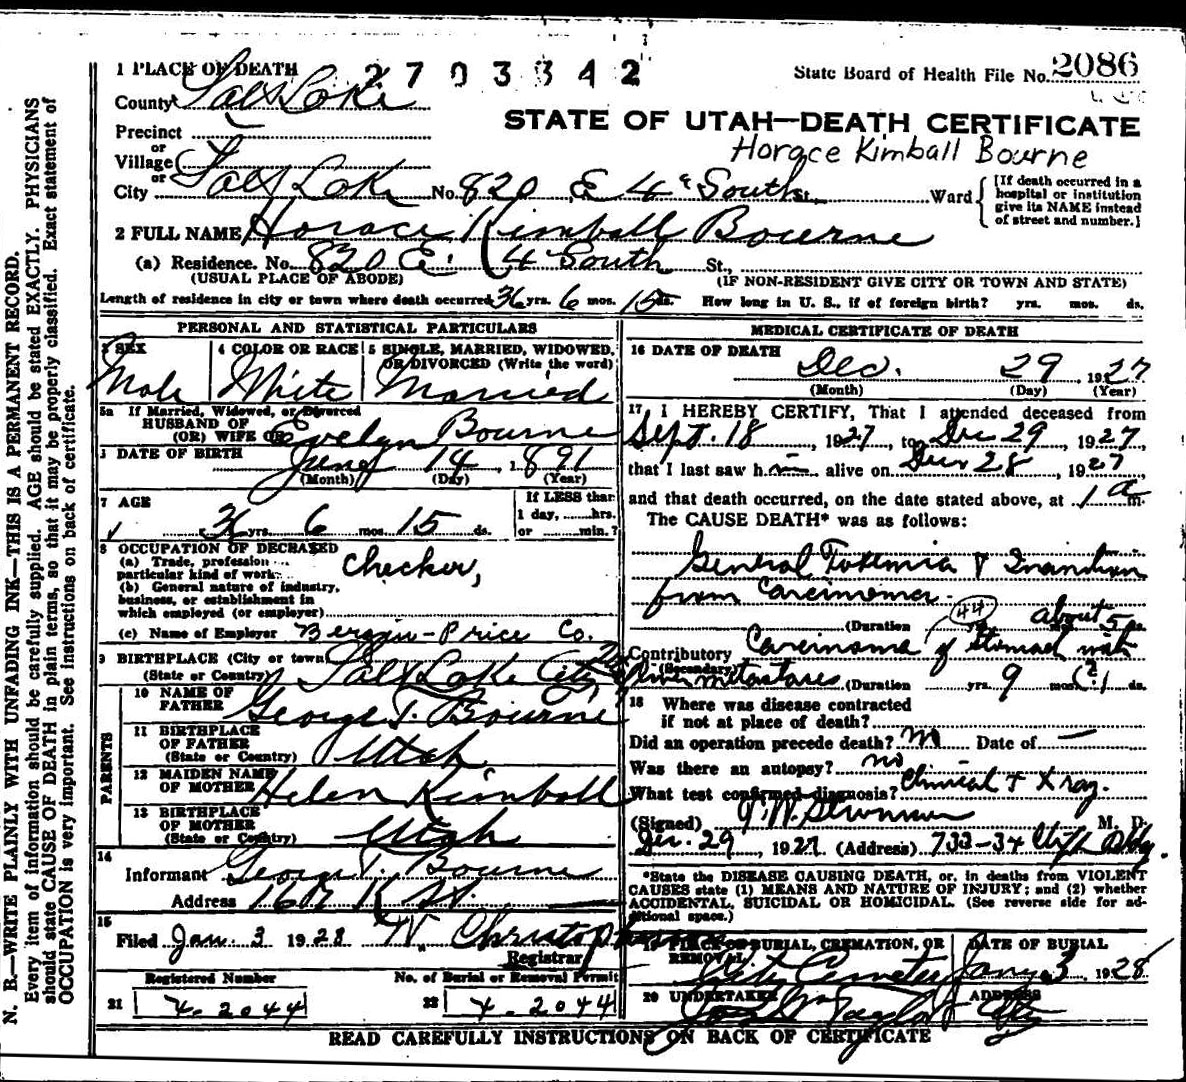 1 PLACE OF DEATH 2703342 State Board of Health File No. 2086
County Salt Lake
STATE OF UTAH—DEATH CERTIFICATE
Precinct
or
Village
Horace Kimball Bourne
or
City Salt Lake No. 820 E 4 South St., Ward [If death occurred in a hospital or institution give its NAME instead of street and number.]
2 FULL NAME Horace Kimball Bourne
(a) Residence. No. 820 E. 4 South St.,
(USUAL PLACE OF ABODE) (IF NON-RESIDENT GIVE CITY OR TOWN AND STATE)
Length of residence in city or town where death occurred 36 yrs. 6 mos. 15 ds. How long in U. S., if of foreign birth? yrs. mos. ds.
PERSONAL AND STATISTICAL PARTICULARS
3 SEX Male
4 COLOR OR RACE White
5 SINGLE, MARRIED, WIDOWED, OR DIVORCED (Write the word) Married
5a If Married, Widowed, or Divorced
HUSBAND OF
(OR) WIFE OF Evelyn Bourne
DATE OF BIRTH June 14 1891
(Month) (Day) (Year)
7 AGE 36 yrs. 6 mos. 15 ds.
If LESS than
1 day, hrs.
or min.?
8 OCCUPATION OF DECEASED
(a) Trade, profession
particular kind of work Checker,
(b) General nature of industry,
business, or establishment in
which employed (or employer)
(c) Name of Employer Price Co.
9 BIRTHPLACE (City or town
(State or Country) Salt Lake City
PARENTS
10 NAME OF
FATHER George T. Bourne
11 BIRTHPLACE
OF FATHER
(State or Country) Utah
12 MAIDEN NAME
OF MOTHER Helen Kimball
13 BIRTHPLACE
OF MOTHER
(State or Country) Utah
14
Informant George T. Bourne
Address 167 K St.
15
Filed Jan. 3 1928 W. Christopherson
Registrar
Registered Number No. of Burial or Removal Permit
21 4-2044 22 4-2044
MEDICAL CERTIFICATE OF DEATH
16 DATE OF DEATH
Dec. 29, 1927
(Month) (Day) (Year)
17 I HEREBY CERTIFY, That I attended deceased from
Sept. 18, 1927, to Dec 29, 1927,
that I last saw him alive on Dec 28, 1927
and that death occurred, on the date stated above, at 1 a m.
The CAUSE DEATH* was as follows:
General Toxemia & Inanition
from Carcinoma.
44
(Duration about 5 ds.
Contributory Carcinoma of Stomach with
(Secondary) liver metastases (Duration yrs. 9 mos. (?) ds.
18 Where was disease contracted
if not at place of death?
Did an operation precede death? no Date of —
Was there an autopsy? no
What test confirmed diagnosis? Clinical & X ray.
(Signed) M. D.
Dec. 29, 1927 (Address) 733-34 Clift Bldg.
*State the DISEASE CAUSING DEATH, or, in deaths from VIOLENT
CAUSES state (1) MEANS AND NATURE OF INJURY; and (2) whether
ACCIDENTAL, SUICIDAL OR HOMICIDAL. (See reverse side for ad-
ditional space.)
19 PLACE OF BURIAL, CREMATION, OR
REMOVAL City Cemetery
DATE OF BURIAL
Jany 3 1928
20 UNDERTAKER Taylor
ADDRESS City
READ CAREFULLY INSTRUCTIONS ON BACK OF CERTIFICATE
N. B.—WRITE PLAINLY WITH UNFADING INK—THIS IS A PERMANENT RECORD.
Every item of information should be carefully supplied. AGE should be stated EXACTLY. PHYSICIANS
should state CAUSE OF DEATH in plain terms, so that it may be properly classified. Exact statement of
OCCUPATION is very important. See instructions on back of certificate.